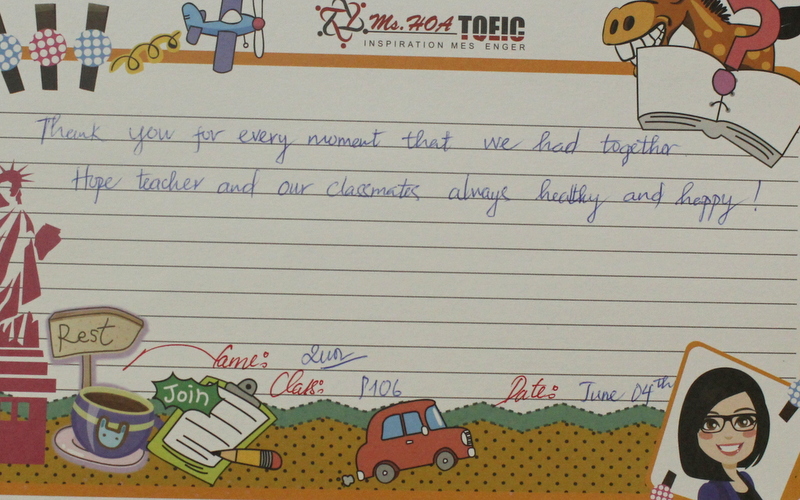 Ms. HOA TOEIC
INSPIRATION MES ENGER
Thank you for every moment that we had together
Hope teacher and our classmates always healthy and happy!
Rest
Name:
Join
Class: P106
Date: June 04th